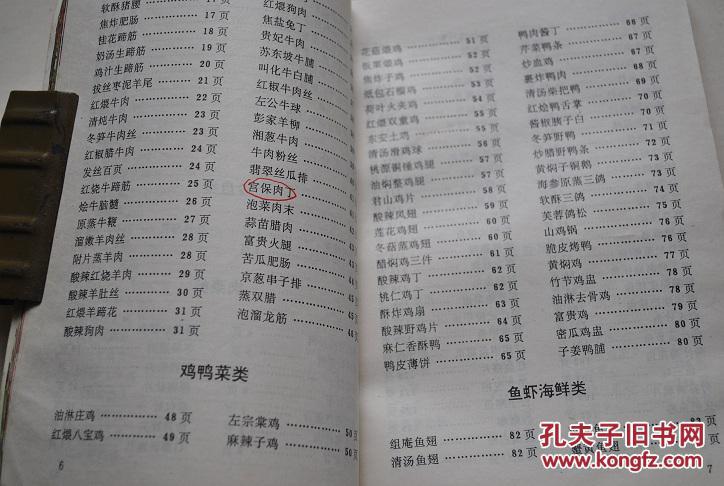 软酥猪腰 17页
焦炸肥肠 17页
桂花蹄筋 18页
奶汤生蹄筋 19页
鸡汁生蹄筋 20页
拔丝枣泥羊尾 21页
红煨牛肉 22页
清炖牛肉 23页
冬笋牛肉丝 24页
红椒腊牛肉 24页
发丝百页 24页
红烧牛蹄筋 25页
烩牛脑髓 26页
原蒸牛鞭 27页
溜嫩羊肉丝 28页
附片蒸羊肉 28页
酸辣红烧羊肉 29页
酸辣羊肚丝 30页
红煨羊蹄花 31页
酸辣狗肉 31页
红煨狗肉
焦盐兔丁
贵妃牛肉
苏东坡牛腩
叫化牛白腰
红椒牛肉丝
左公牛球
彭家羊柳
湘葱牛肉
牛肉粉丝
翡翠丝瓜排
宫保肉丁
泡菜肉末
蒜苗腊肉
富贵火腿
苦瓜肥肠
京葱串子排
蒸双腊
泡溜龙筋
鸡鸭菜类
油淋庄鸡 48页
红煨八宝鸡 49页
左宗棠鸡 50页
麻辣子鸡 50页
6
花菇煨鸡 51页
板栗煨鸡 52页
焦炸子鸡 52页
纸包石榴鸡 53页
荷叶火夹鸡 54页
红煨双童鸡 55页
东安土鸡 55页
清汤滑鸡球 56页
桃源铜锤鸡腿 57页
油焖整鸡腿 57页
君山鸡片 58页
酸辣凤翅 59页
莲花鸡翅 60页
冬菇蒸鸡翅 60页
醋焖鸡三件 61页
酸辣鸡丁 62页
桃仁鸡丁 62页
酥炸鸡扇 63页
酸辣野鸡片 64页
麻仁香酥鸭 65页
鸭皮薄饼 65页
鸭肉酱丁 66页
芹菜鸭条 66页
炒血鸡 67页
裹炸鸭肉 68页
清汤柴把鸭 68页
红烩鸭舌掌 69页
酱椒胰子白 70页
冬笋野鸭 70页
炒腊野鸭条 71页
黄焖子铜鹅 72页
海参原蒸三鸽 73页
软酥三鸽 73页
芙蓉鸽松 74页
山鸡锅 75页
脆皮烤鸭 75页
黄焖鸡 76页
竹节鸡盅 77页
油淋去骨鸡 78页
富贵鸡 77
密瓜鸡盅 80页
子姜鸭脯 80页
鱼虾海鲜类
组庵鱼翅 82页
清汤鱼翅 82页
蟹黄鱼翅
7
孔夫子旧书网
www.kongfz.com